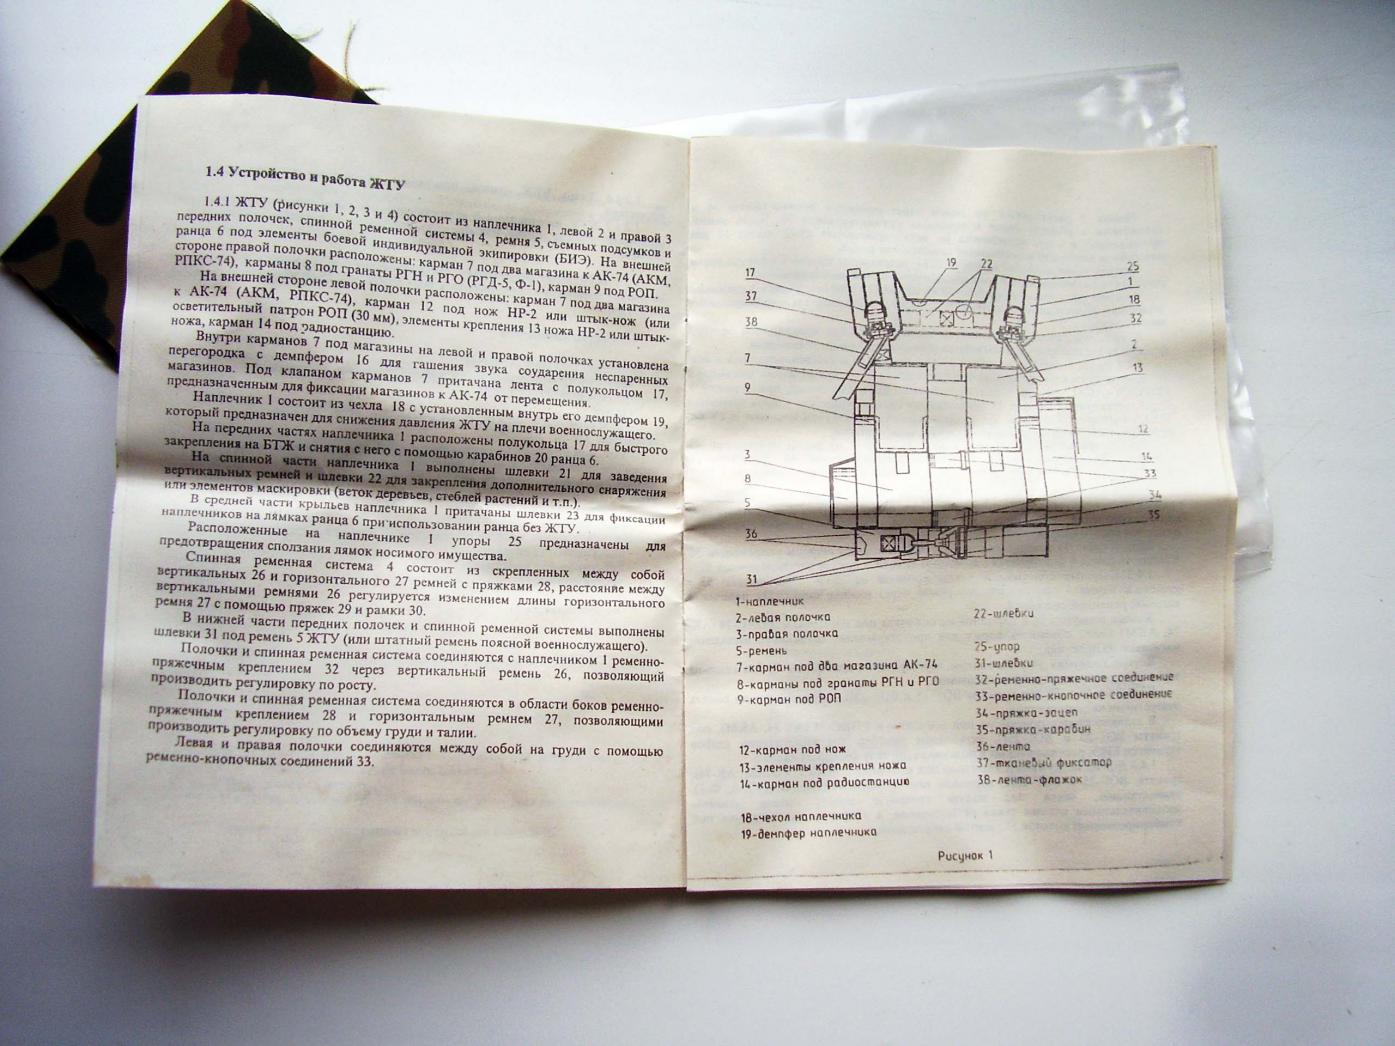 1.4 Устройство и работа ЖТУ
1.4.1 ЖТУ (рисунки 1, 2, 3 и 4) состоит из наплечника 1, левой 2 и правой 3
передних полочек, спинной ременной системы 4, ремня 5, съемных подсумков и
ранца 6 под элементы боевой индивидуальной экипировки (БИЭ). На внешней
стороне правой полочки расположены: карман 7 под два магазина к АК-74 (АКМ,
РПКС-74), карманы 8 под гранаты РГН и РГО (РГД-5, Ф-1), карман 9 под РОП.
На внешней стороне левой полочки расположены: карман 7 под два магазина
к АК-74 (АКМ, РПКС-74), карман 12 под нож НР-2 или штык-нож (или
осветительный патрон РОП (30 мм), элементы крепления 13 ножа НР-2 или штык-
ножа, карман 14 под радиостанцию.
Внутри карманов 7 под магазины на левой и правой полочках установлена
перегородка с демпфером 16 для гашения звука соударения неспаренных
магазинов. Под клапаном карманов 7 притачана лента с полукольцом 17,
предназначенным для фиксации магазинов к АК-74 от перемещения.
Наплечник 1 состоит из чехла 18 с установленным внутрь его демпфером 19,
который предназначен для снижения давления ЖТУ на плечи военнослужащего.
На передних частях наплечника 1 расположены полукольца 17 для быстрого
закрепления на БТЖ и снятия с него с помощью карабинов 20 ранца 6.
На спинной части наплечника 1 выполнены шлевки 21 для заведения
вертикальных ремней и шлевки 22 для закрепления дополнительного снаряжения
или элементов маскировки (веток деревьев, стеблей растений и т.п.).
В средней части крыльев наплечника 1 притачаны шлевки 23 для фиксации
наплечников на лямках ранца 6 при использовании ранца без ЖТУ.
Расположенные на наплечнике 1 упоры 25 предназначены для
предотвращения сползания лямок носимого имущества.
Спинная ременная система 4 состоит из скрепленных между собой
вертикальных 26 и горизонтального 27 ремней с пряжками 28, расстояние между
вертикальными ремнями 26 регулируется изменением длины горизонтального
ремня 27 с помощью пряжек 29 и рамки 30.
В нижней части передних полочек и спинной ременной системы выполнены
шлевки 31 под ремень 5 ЖТУ (или штатный ремень поясной военнослужащего).
Полочки и спинная ременная система соединяются с наплечником 1 ременно-
пряжечным креплением 32 через вертикальный ремень 26, позволяющий
производить регулировку по росту.
Полочки и спинная ременная система соединяются в области боков ременно-
пряжечным креплением 28 и горизонтальным ремнем 27, позволяющими
производить регулировку по объему груди и талии.
Левая и правая полочки соединяются между собой на груди с помощью
ременно-кнопочных соединений 33.
17
37
38
7
9
3
8
5
36
31
19
22
25
1
18
32
2
13
12
14
33
34
35
1-наплечник
2-левая полочка
3-правая полочка
5-ремень
7-карман под два магазина АК-74
8-карманы под гранаты РГН и РГО
9-карман под РОП
12-карман под нож
13-элементы крепления ножа
14-карман под радиостанцию
18-чехол наплечника
19-демпфер наплечника
22-шлевки
25-упор
31-шлевки
32-ременно-пряжечное соединение
33-ременно-кнопочное соединение
34-пряжка-зацеп
35-пряжка-карабин
36-лента
37-тканевый фиксатор
38-лента-флажок
Рисунок 1